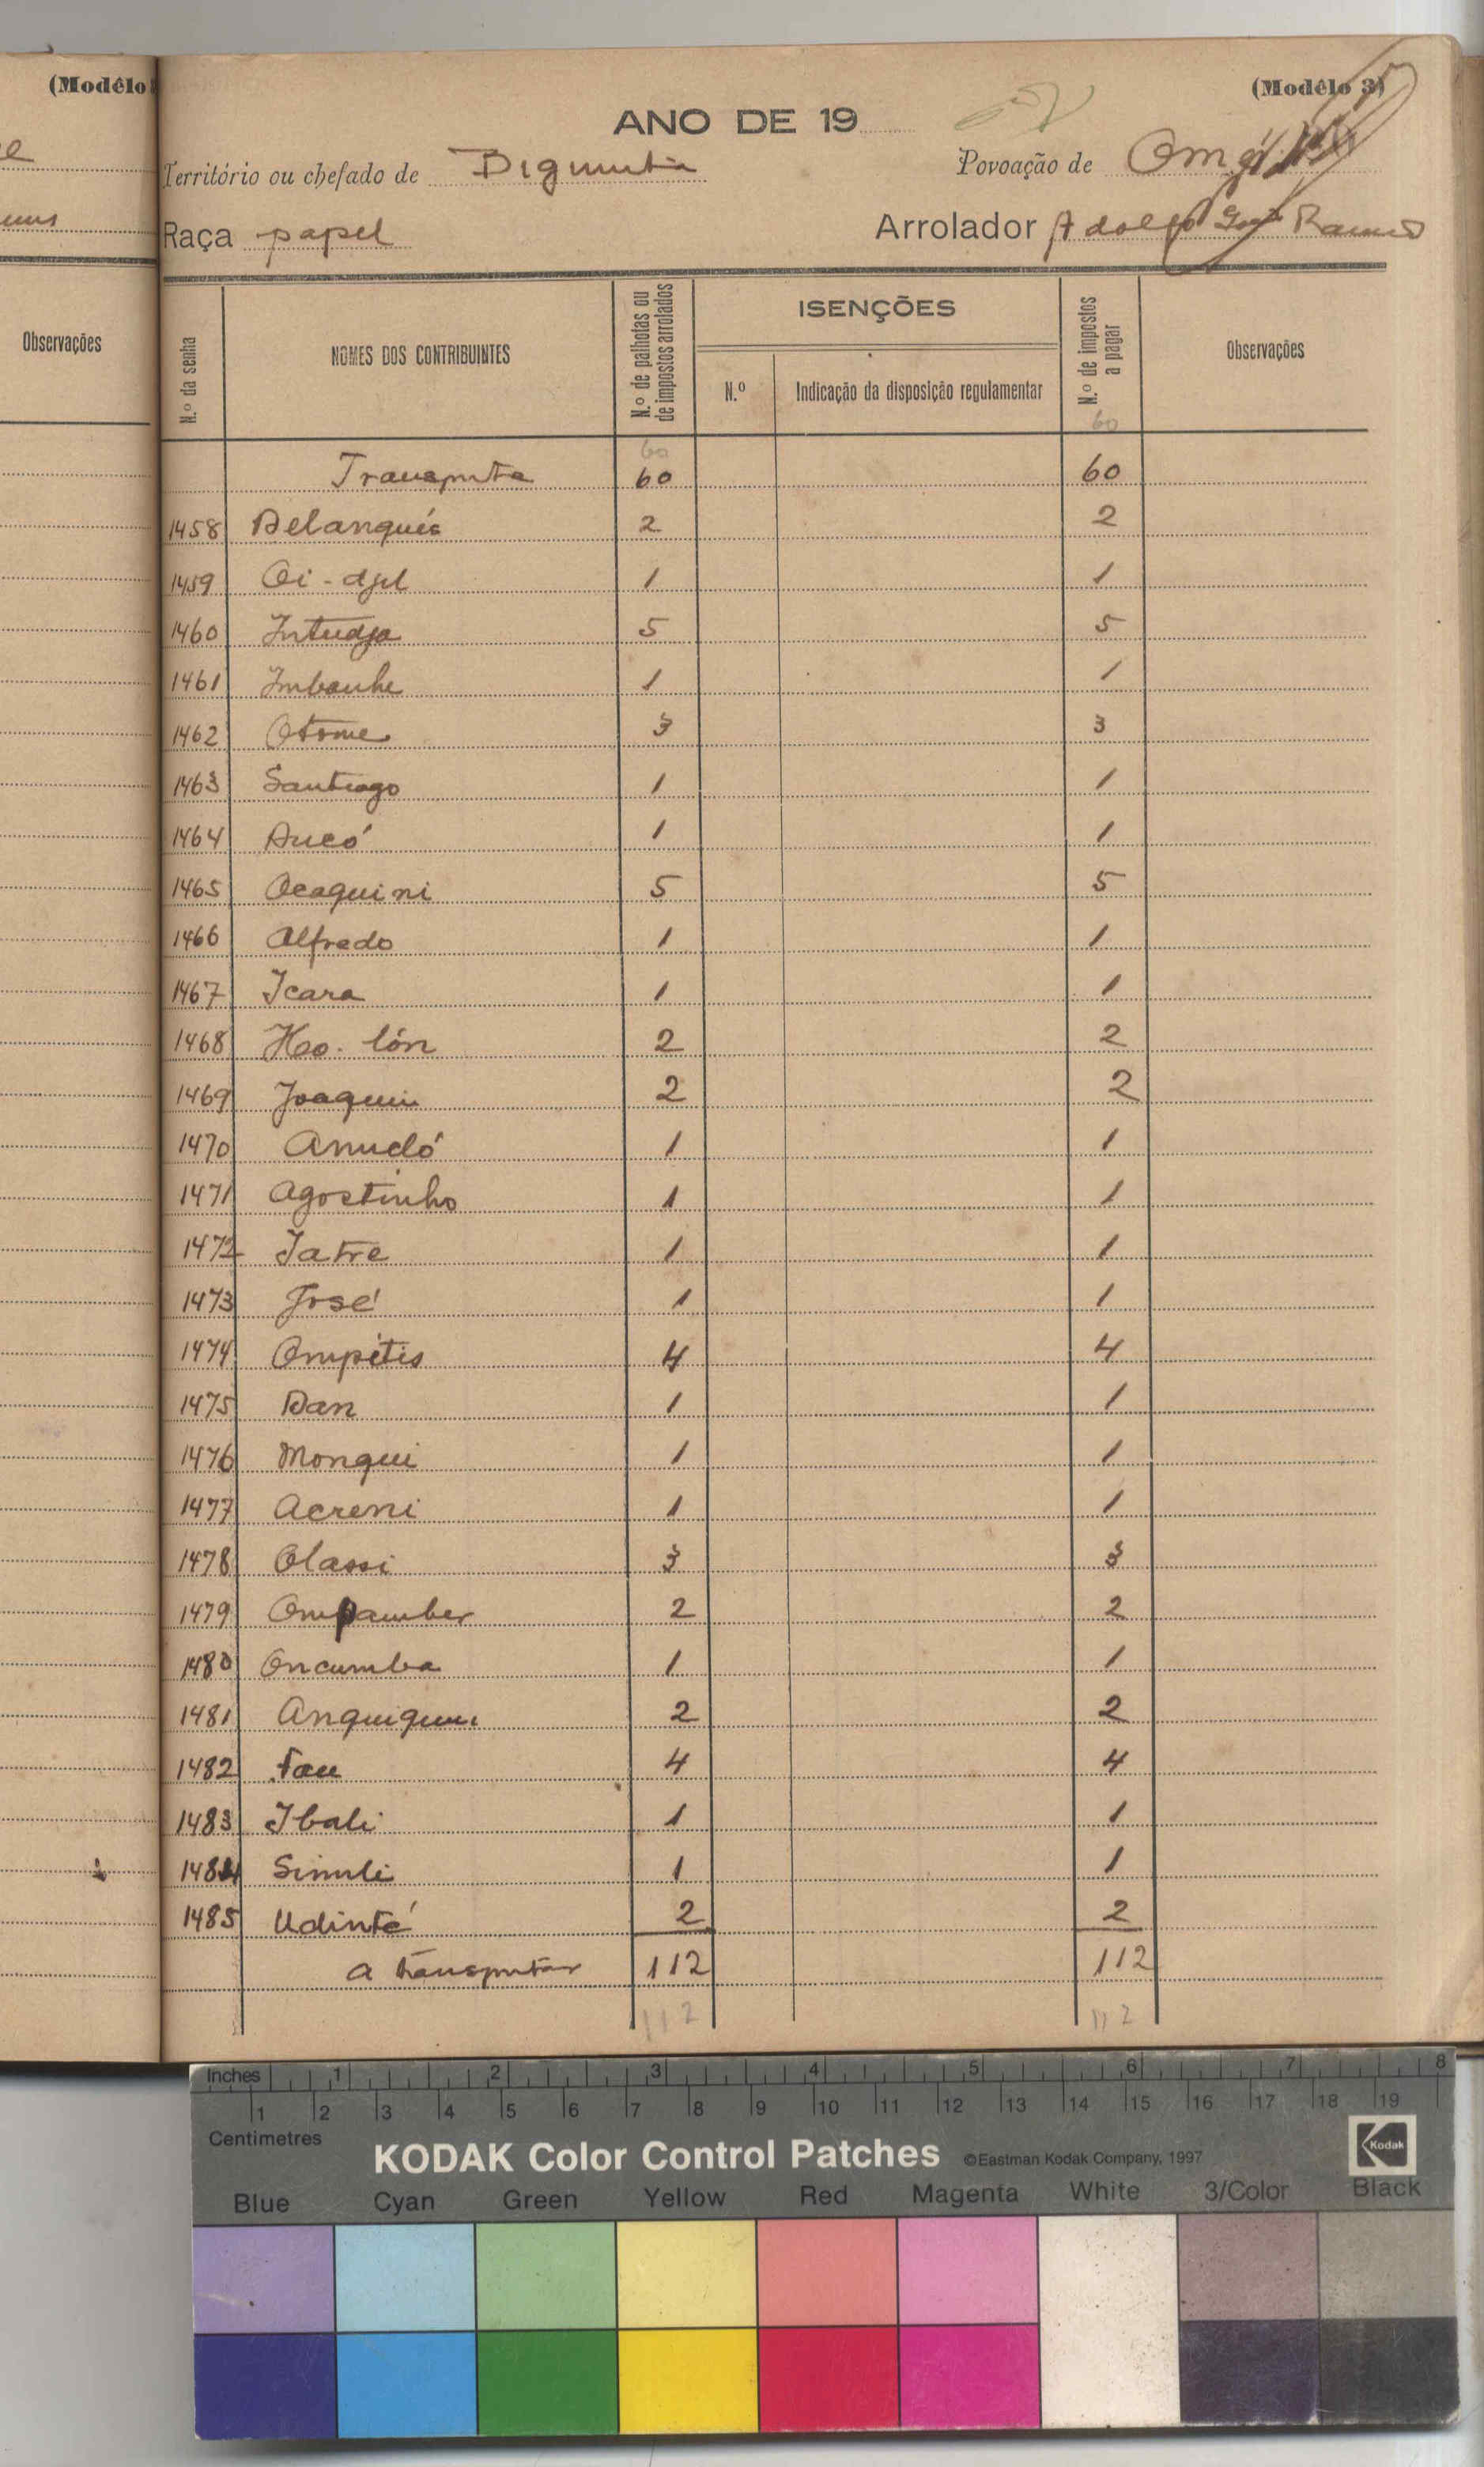 (Modêlo
(Modêlo 3)
ANO DE 19
Território ou chefado de Bigimita
Povoação de
Raça papel
Arrolador Adolfo Ramos
Observações
N.º da senha
NOMES DOS CONTRIBUINTES
N.º de palhotas ou de impostos arrolados
ISENÇÕES
N.º
Indicação da disposição regulamentar
N.º de impostos a pagar
Observações
60 60
Transporte 60 60
1458 Belanqués 2 2
1459 Oi-djel 1 1
1460 Intudja 5 5
1461 Imbanhe 1 1
1462 Otome 3 3
1463 Santiago 1 1
1464 Aucó 1 1
1465 Ocaquini 5 5
1466 Alfredo 1 1
1467 Icara 1 1
1468 Ho-lón 2 2
1469 Joaquim 2 2
1470 1 1
1471 Agostinho 1 1
1472 Jatre 1 1
1473 José 1 1
1474 Ompétis 4 4
1475 Dan 1 1
1476 Monqui 1 1
1477 Acreni 1 1
1478 Olassi 3 3
1479 Ompamber 2 2
1480 Oncumba 1 1
1481 2 2
1482 Fau 4 4
1483 Ibali 1 1
1484 1 1
1485 Udinté 2 2
A transportar 112 112
112 112
Inches 1 2 3 4 5 6 7 8
1 2 3 4 5 6 7 8 9 10 11 12 13 14 15 16 17 18 19
Centimetres
KODAK Color Control Patches ©Eastman Kodak Company, 1997 Kodak
Blue Cyan Green Yellow Red Magenta White 3/Color Black